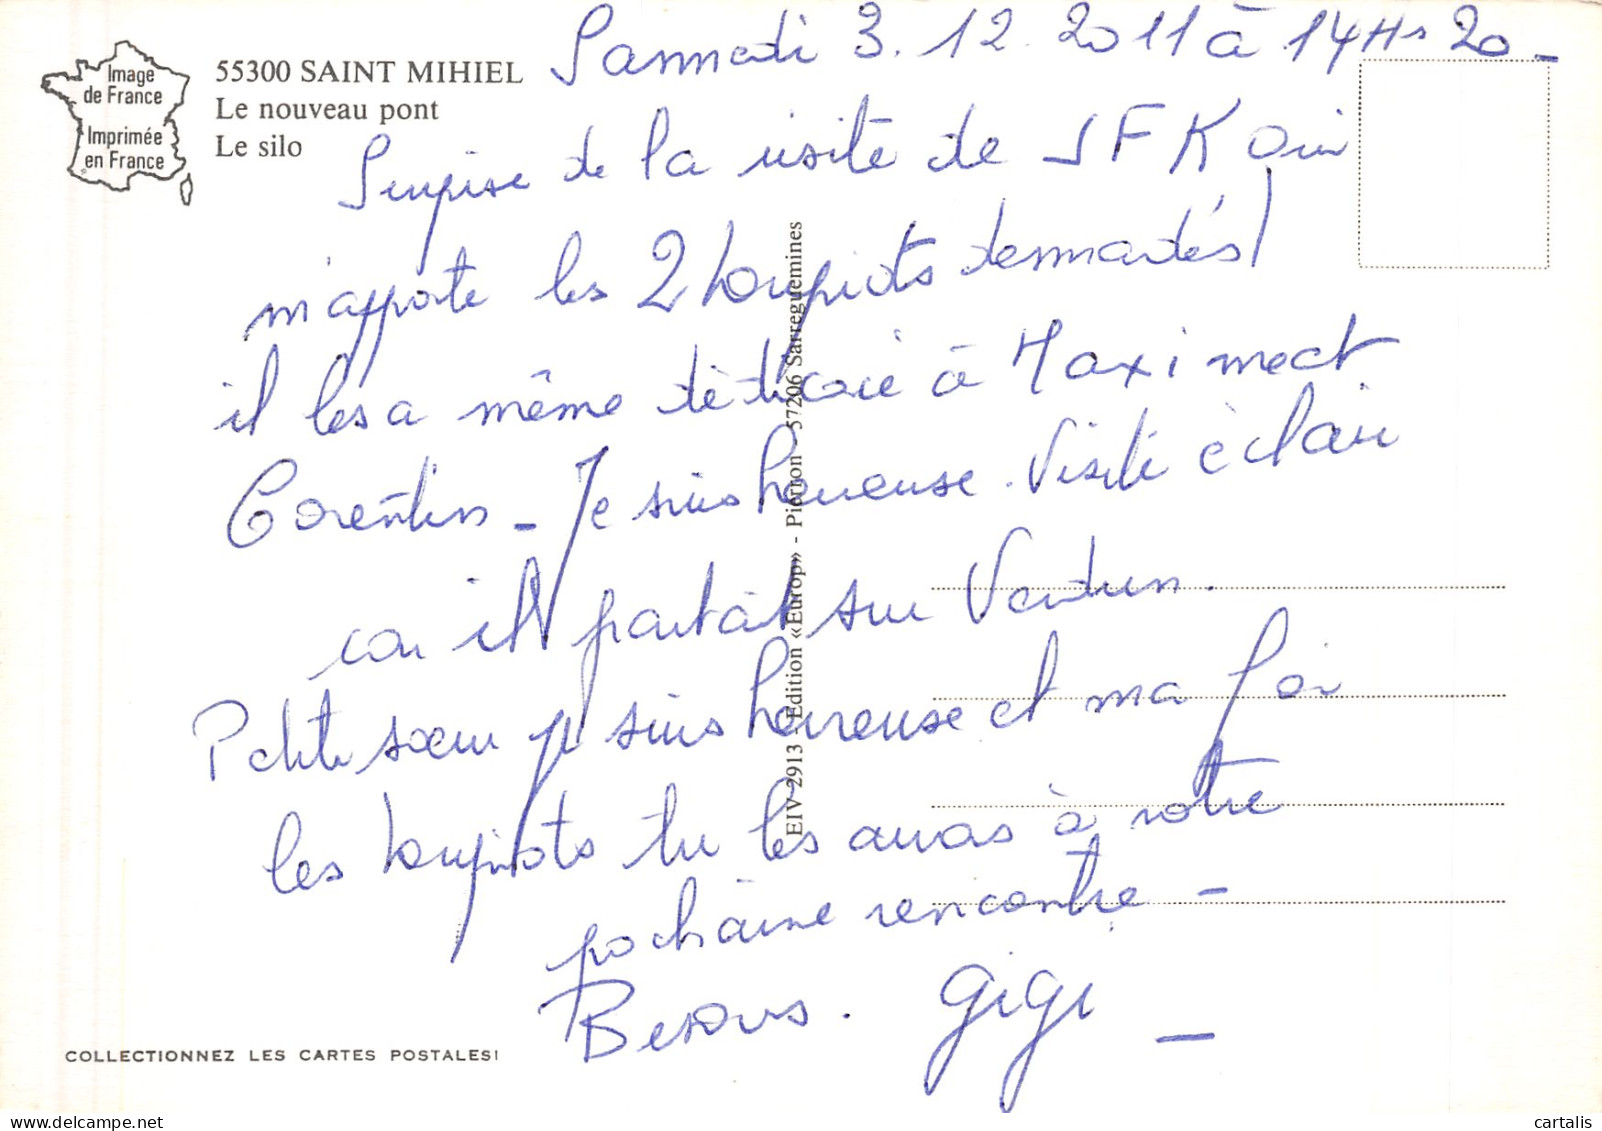 Image
de France
Imprimée
en France
55300 SAINT MIHIEL
Le nouveau pont
Le silo
Sammedi 3.12.2011 à 14Hs 20_
Surpise de la visite de JFK qui
m'apporte les 2 loupiots demandés!
il les a même dédicacé à Maxi mect
Corentin - Je suis heureuse. Visite éclair
car il partait sur Verdun.
Petite sœur je suis heureuse et ma foi
les loupiots tu les auras à notre
pochaine rencontre -
Besous. GIGI _
EIV 2913 - Edition «Europ» - Pierron - 57206 Sarreguemines
COLLECTIONNEZ LES CARTES POSTALES!
cartalis